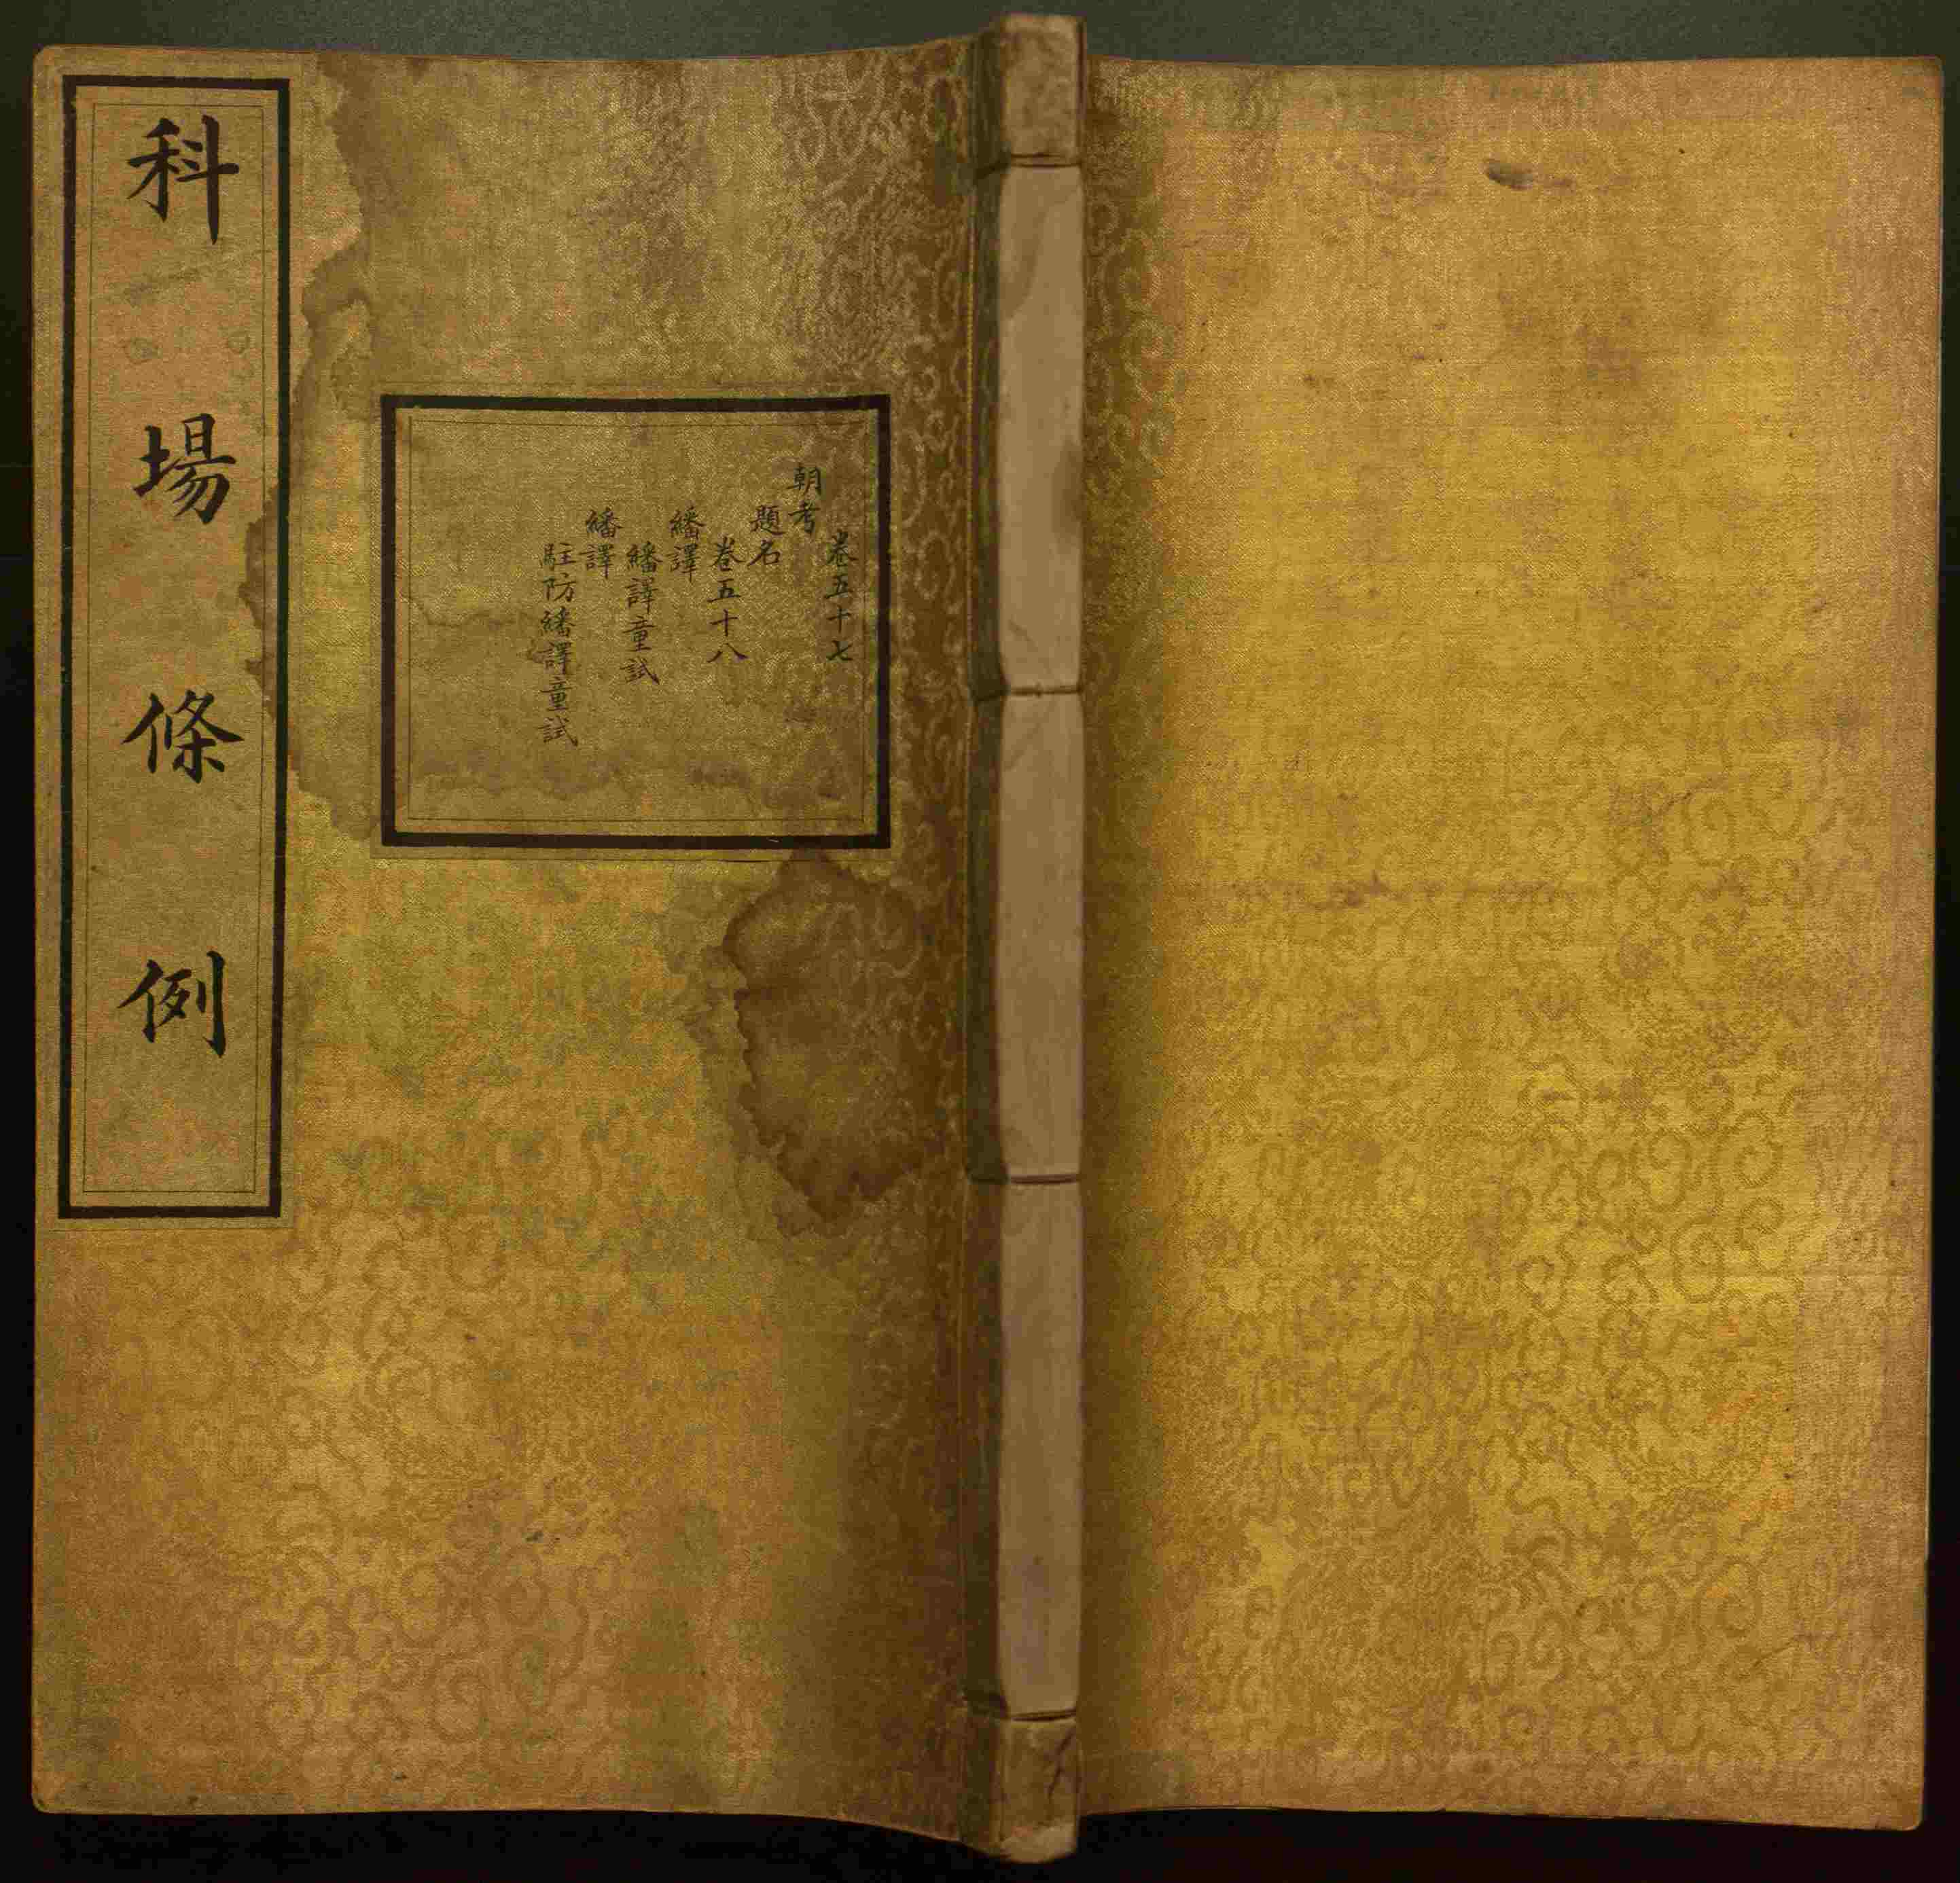 科場條例
卷五十七
朝考
題名
卷五十八
繙譯
繙譯童試
繙譯
駐防繙譯童試